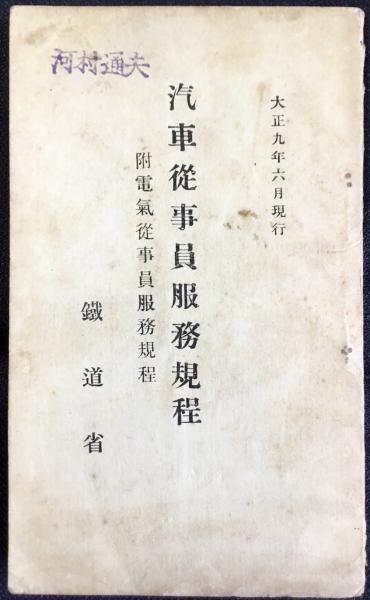 大正九年六月現行
汽車從事員服務規程
附電氣從事員服務規程
鐵道省
河村通夫